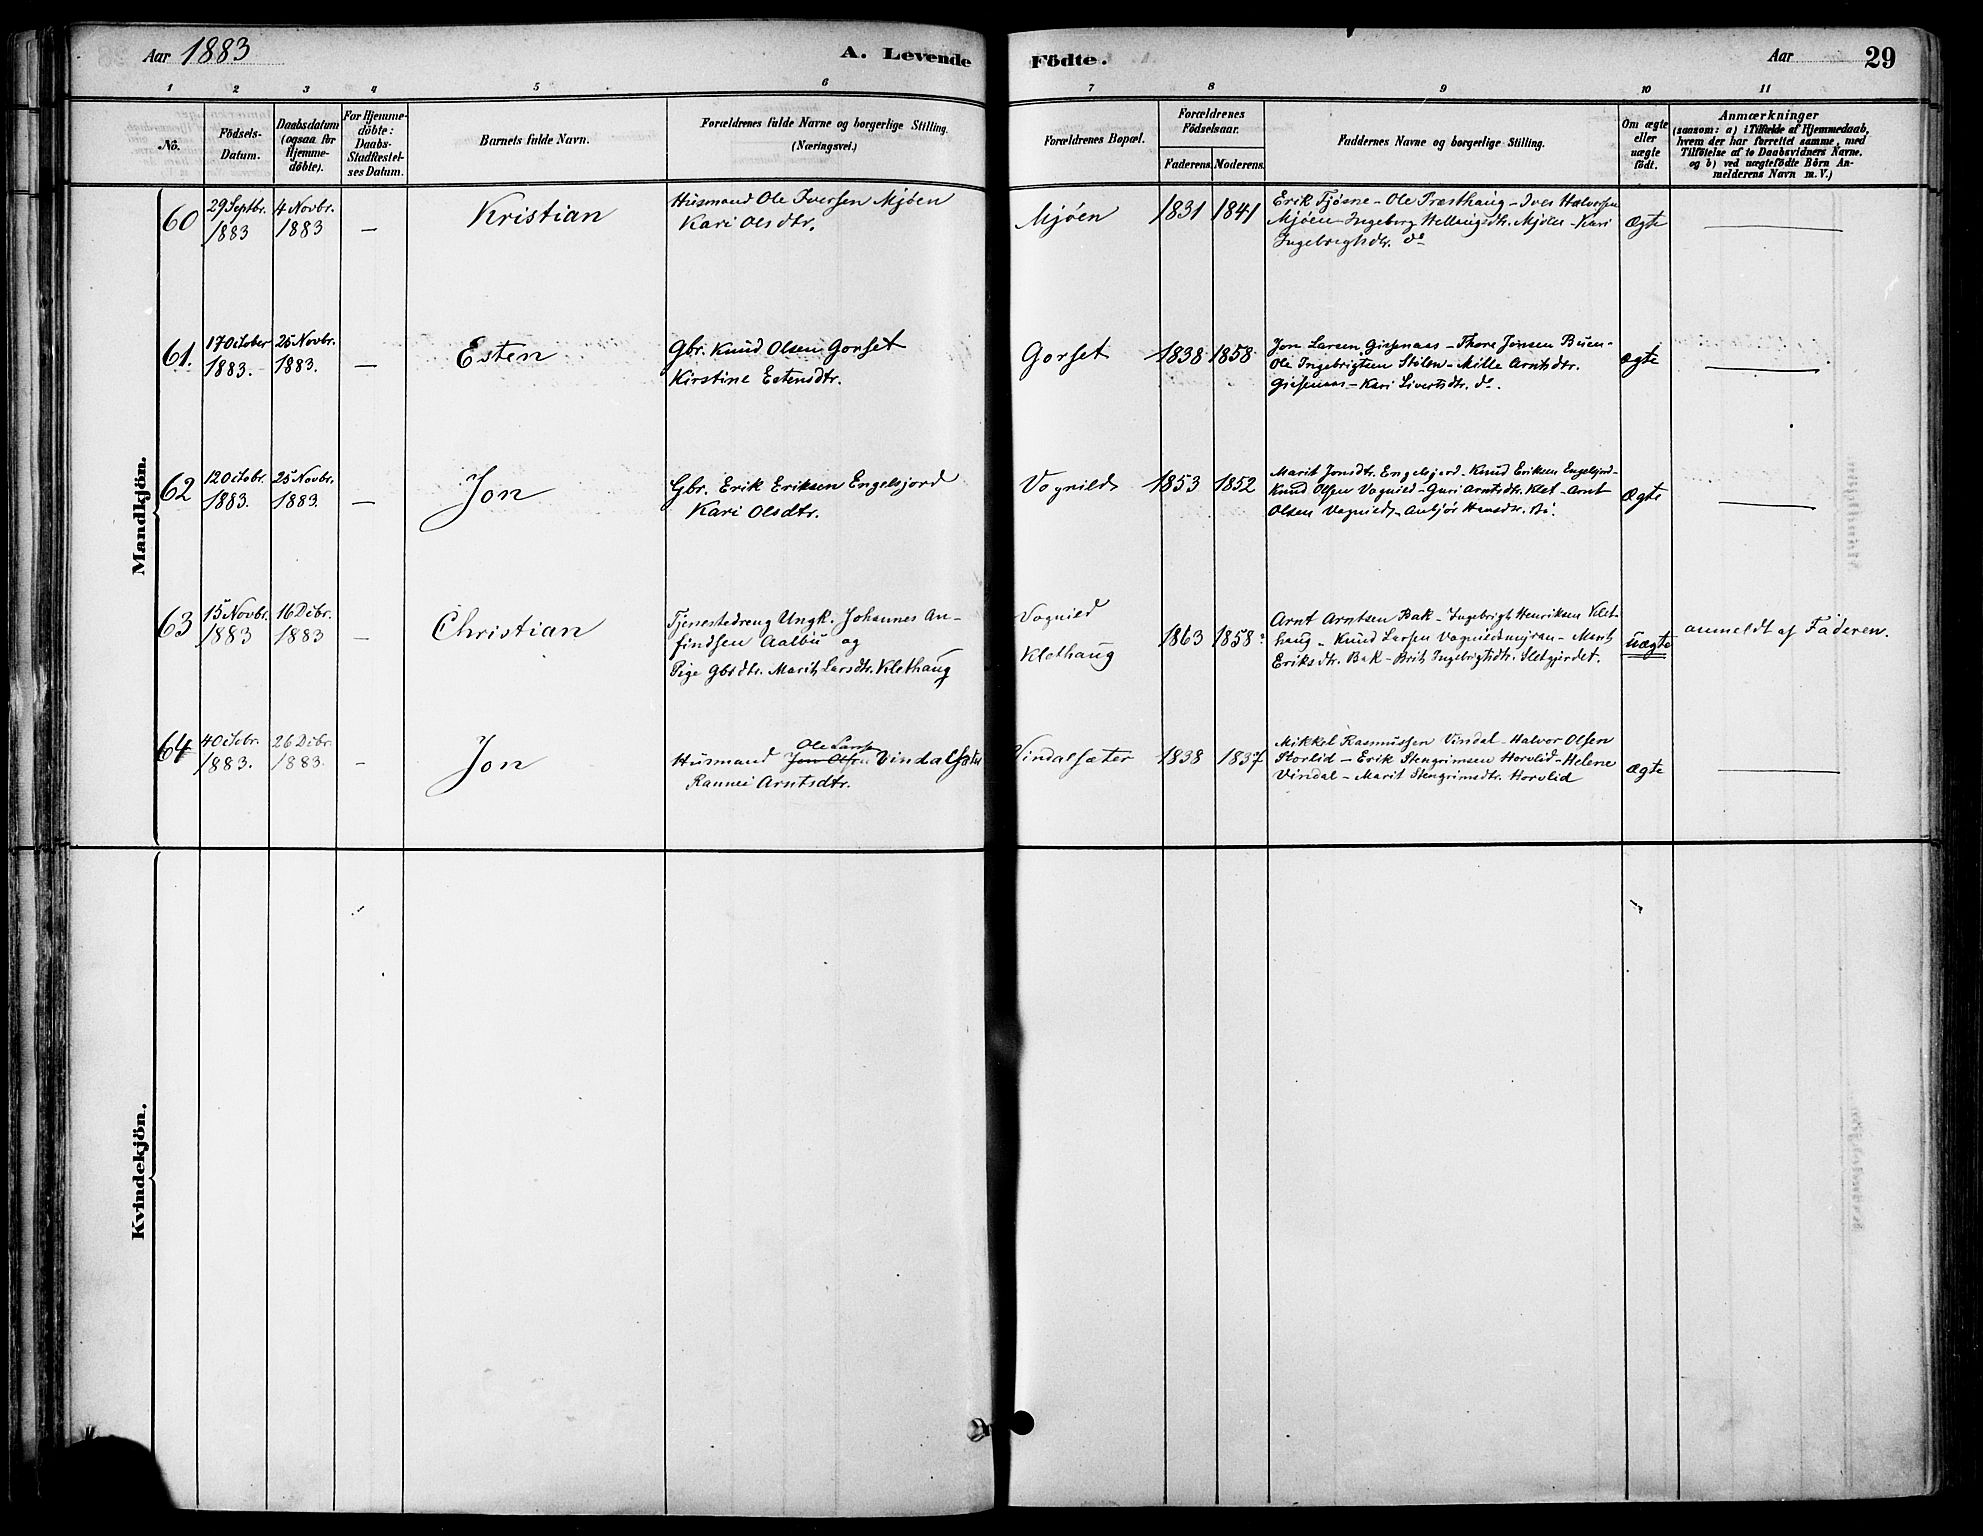 Aar 1883 A. Levende Födte. Aar 29
1 2 3 4 5 6 7 8 9 10 11
No.
Födsels-
Datum.
Daabsdatum
(ogsaa for
Hjemme-
döbte).
For Hjemme-
döbte:
Daabs-
Stadfæstel-
ses Datum.
Barnets fulde Navn.
Forældrenes fulde Navne og borgerlige Stilling.
(Næringsvei.)
Forældrenes Bopæl.
Forældrenes
Födselsaar.
Faderens. Moderens.
Faddernes Navne og borgerlige Stilling.
Om ægte
eller
uægte
födt.
Anmærkninger
(saasom: a) i Tilfælde af Hjemmedaab,
hvem der har forrettet samme, med
Tilföielse af to Daabsvidners Navne.
og b) ved uægtefödte Börn An-
melderens Navn m. V.)
Mandkjön.
60 29 Septbr. 1883 4 Novbr. 1883 — Kristian
Husmand Ole Iversen Mjöen
Kari Olsdtr.
Mjöen 1831 1841
Erik Fjösne - Ole Præsthaug - Iver Halvorsen
Mjöen - Ingeborg Mjöen - Kari
Ingebrigtsdtr. do
Ægte
61. 17 October 1883. 25 Novbr. 1883. — Esten
Gbr. Knud Olsen Gorset
Kirstine Estensdtr.
Gorset 1838 1858
Jon Larsen - Thore Jonsen
Ole Ingebrigtsen Stölen - Mille Arntsdtr.
- Kari Sivertsdtr. do.
ægte
62 12 Octobr. 1883. 25 Novbr. 1883. — Jon
Gbr. Erik Eriksen Engelsjord
Kari Olsdtr.
Vognild 1853 1852
Marit Jonsdtr. Engelsjord - Knud Eriksen Engelsjord -
Knud Olsen Vognild - Guri Arntsdtr. Klet - Arnt
Olsen Vognild -
Ægte
63 15 Novbr. 1883 16 Dcbr. 1883 — Christian
Tjenestedreng Ungk. Johannes An-
findsen Aalbu og
Pige Gbrdtr. Marit Larsdtr. Klethaug
Vognild
Klethaug
1863 1858
Arnt Arntsen Bak - Ingebrigt Henriksen Klet-
haug - Knud Larsen Vognildsmyran - Marit
Eriksdtr. Bak - Brit Ingebrigtsdtr. Sletgjerdet.
uægte anmeldt af Faderen.
64 4 Octbr. 1883. 26 Dcbr. 1883. - Jon
Ole Larsen
Husmand Jon Olsen Vindalsæter
Rannei Arntsdtr.
Vindalsæter 1838 1837
Mikkel Rasmussen Vindal - Halvor Olsen
Storlid - Erik Stengrimsen Horvlid - Helene
Vindal - Marit Stengrimsdtr. Horvlid
ægte
Kvindekjön.